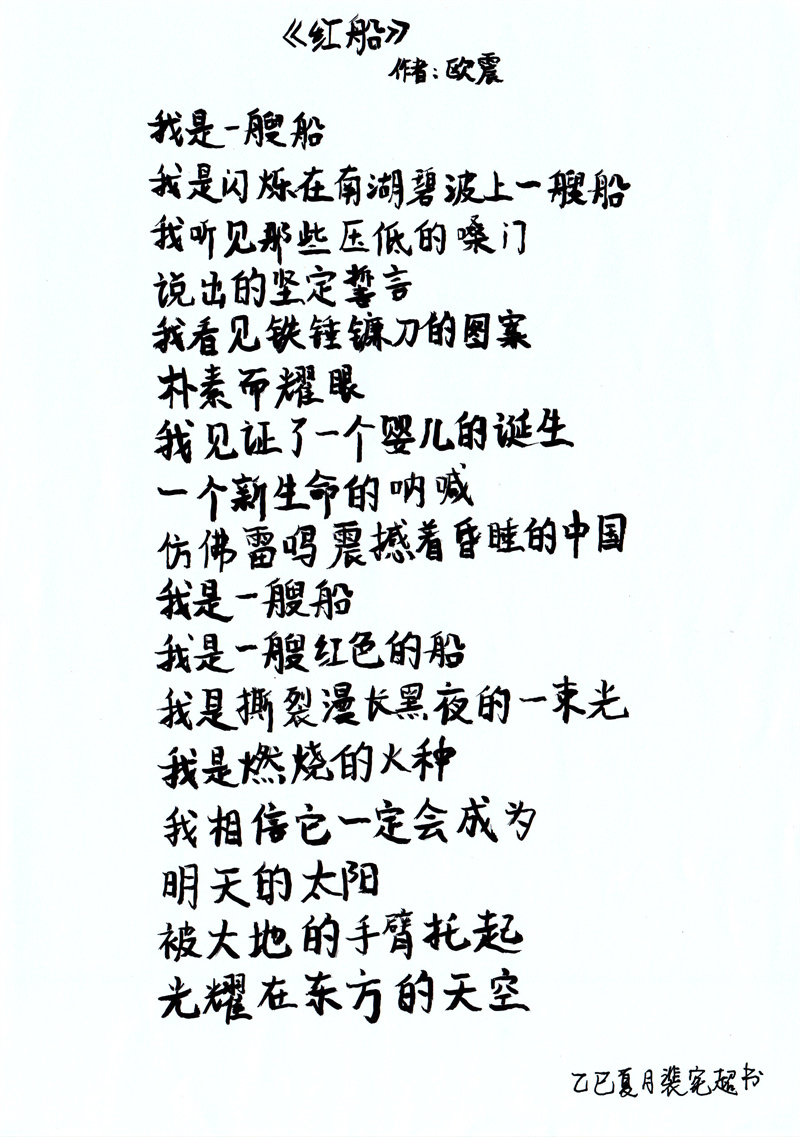 《红船》
作者：欧震
我是一艘船
我是闪烁在南湖碧波上一艘船
我听见那些压低的嗓门
说出的坚定誓言
我看见铁锤镰刀的图案
朴素而耀眼
我见证了一个婴儿的诞生
一个新生命的呐喊
仿佛雷鸣震撼着昏睡的中国
我是一艘船
我是一艘红色的船
我是撕裂漫长黑夜的一束光
我是燃烧的火种
我相信它一定会成为
明天的太阳
被大地的手臂托起
光耀在东方的天空
乙巳夏月裴宪超书